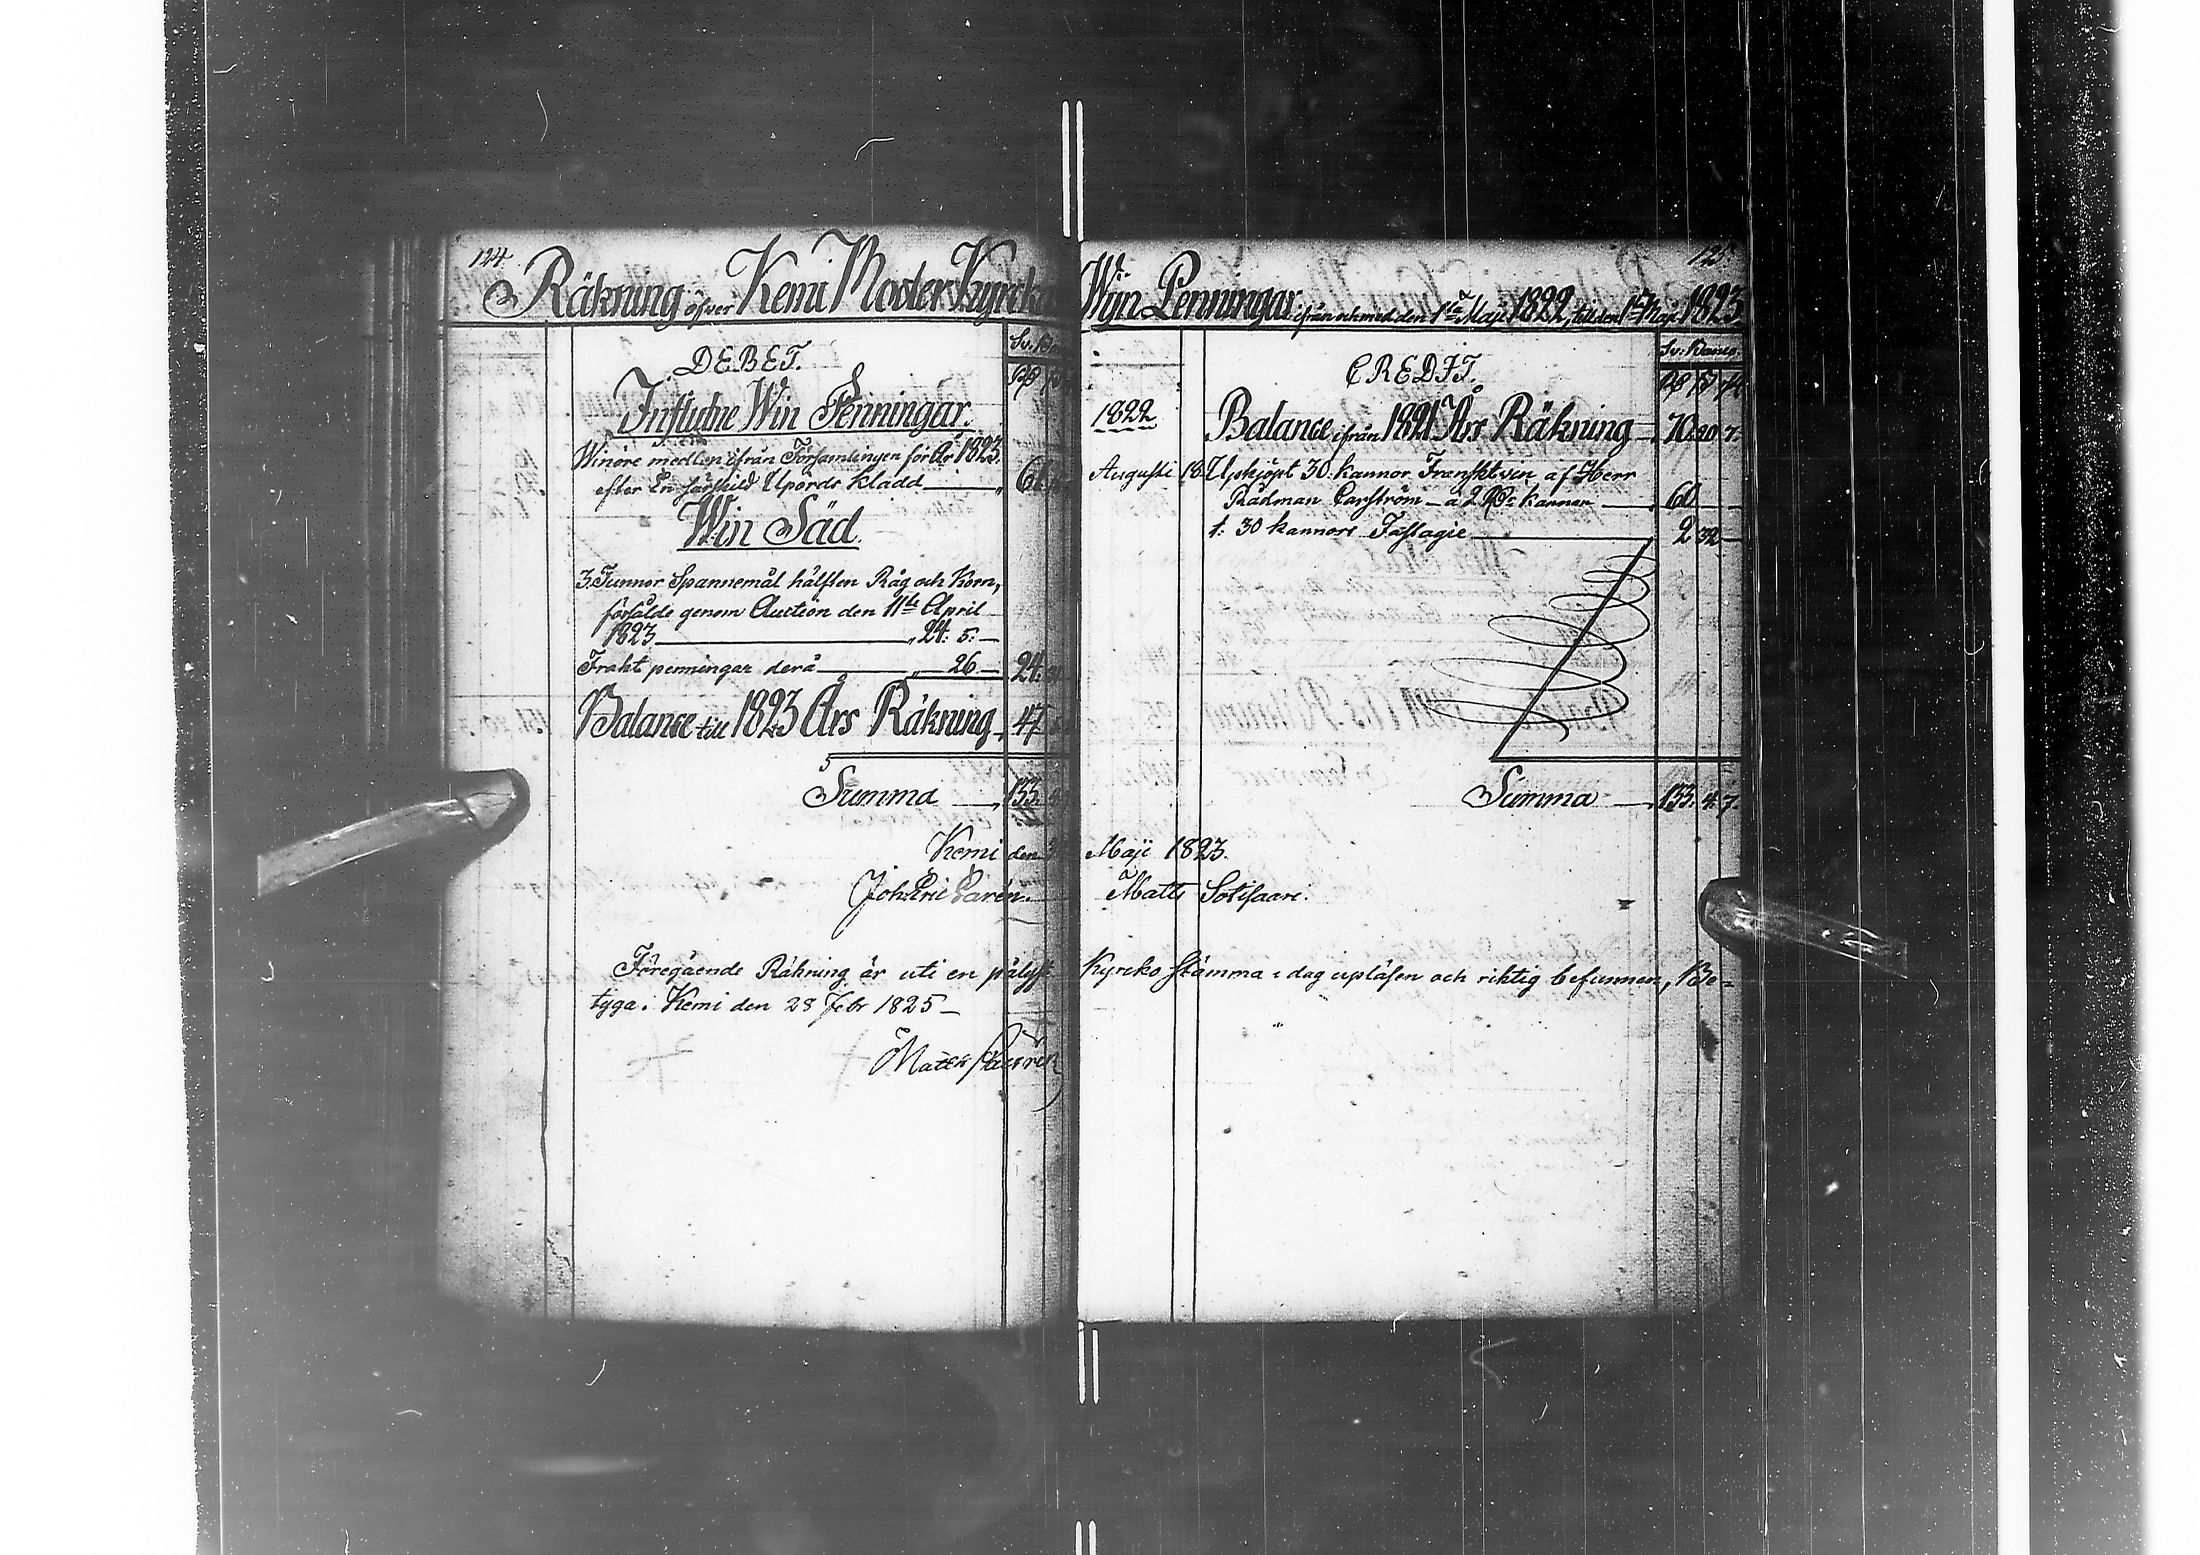 124.
Räkning öfver Kemi Moder Kyrcko
DEBET.
Influtne Win Penningar.
Winöre medlen ifrån Församlingen för År 1823.
efter En särskild Upbörds kladd
Win Säd.
3. Tunnor Spannemål hälften Råg och Korn,
försålde genom Auction den 11te April
1823 24. 5.
Frakt penningar derå 26 24.
Balance till 1823 Års Räkning 47
Summa 133.
Kemi den
Joh: Eric
Föregående Räkning är uti en
tyga: Kemi den 28 Febr 1825
125.
Wijn Penningar ifrån och med den 1sta Maji 1822, till den 1sta Maji 1823
Sv: Banco
CREDIT.
1822 Balance ifrån 1821 Års Räkning 70. 20 7.
Augusti 18. Upkjöpt 30 kannor Franskt vin af Herr
Rådman Carström à 2 Rd kannan 60
t: 30 kannors Fastagie 2 32
Summa 133. 4. 7.
Maji 1823.
Matts Sotisaari.
Kyrcko stämma i dag upläsen och riktig befunnen, Be-